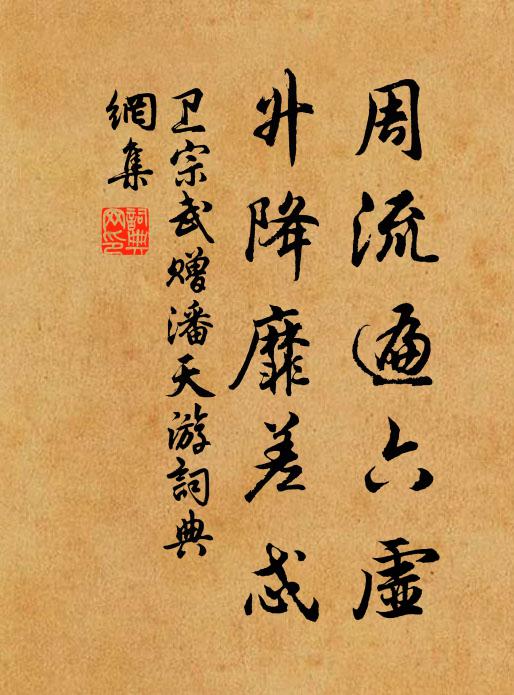 周流遍六虛
升降靡差忒
卫宗武赠潘天游詞典
網集
詞典網印